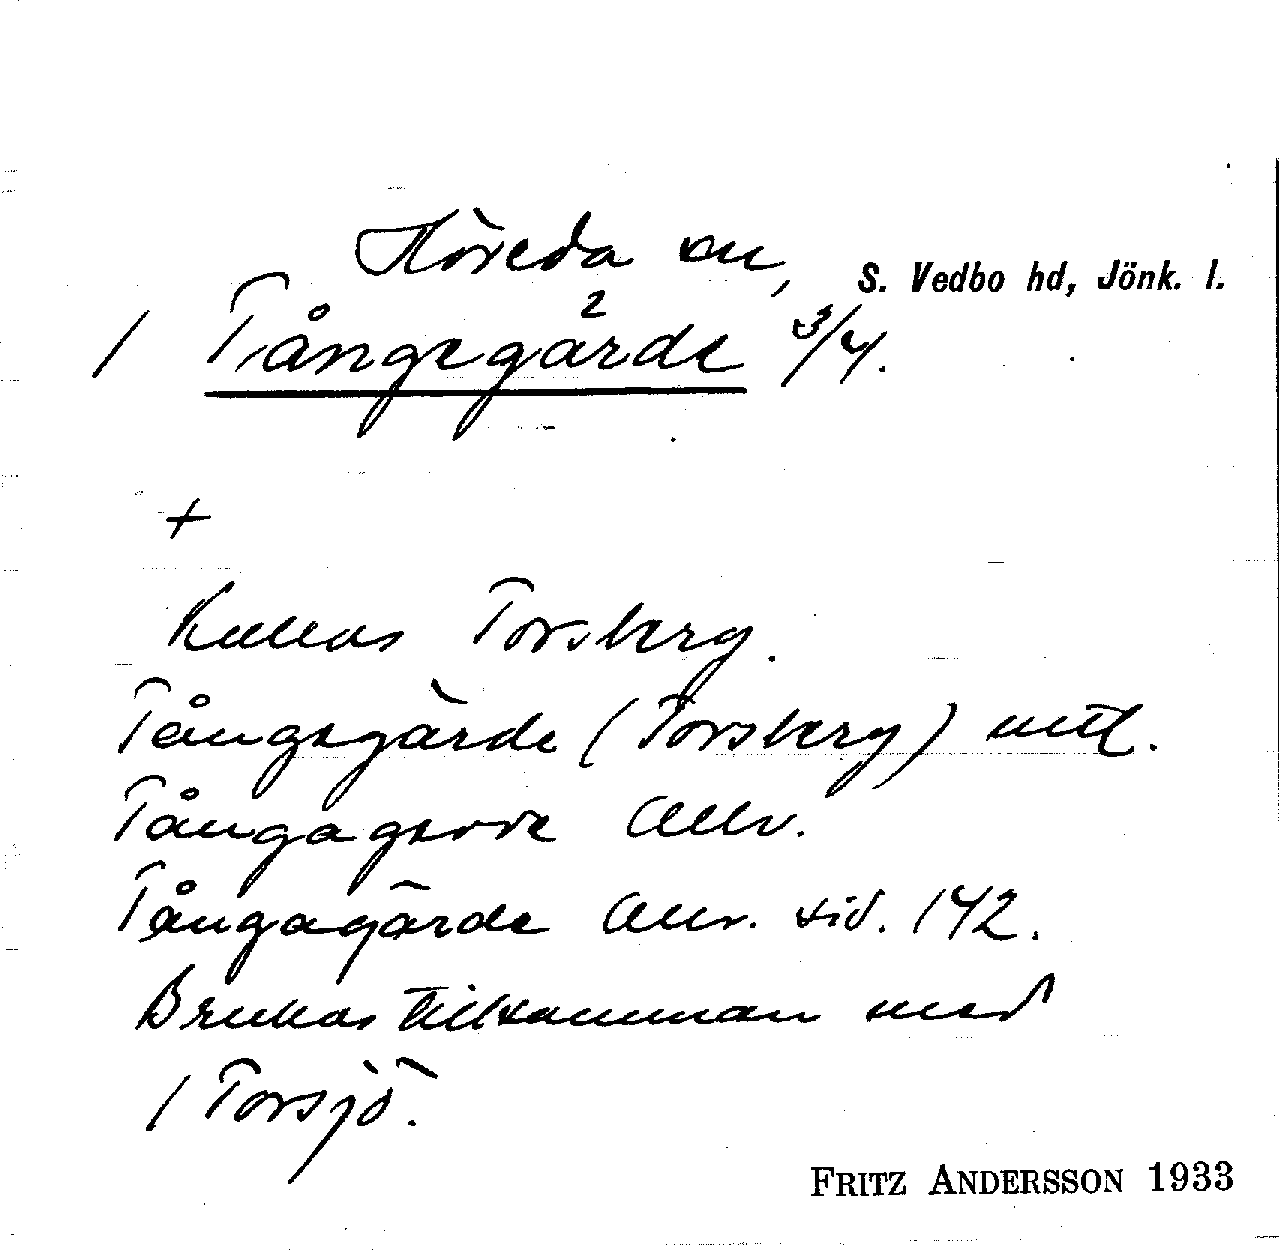 Höreda sn, S. Vedbo hd, Jönk. l.
1 Tångegärde 2 3/4.
+
Kallas Torsberg.
Tångegärde (Torsberg) mtl.
Tångagerde
Tångagärde sid. 142.
Brukas tillsamman med
1 Torsjö.
FRITZ ANDERSSON 1933